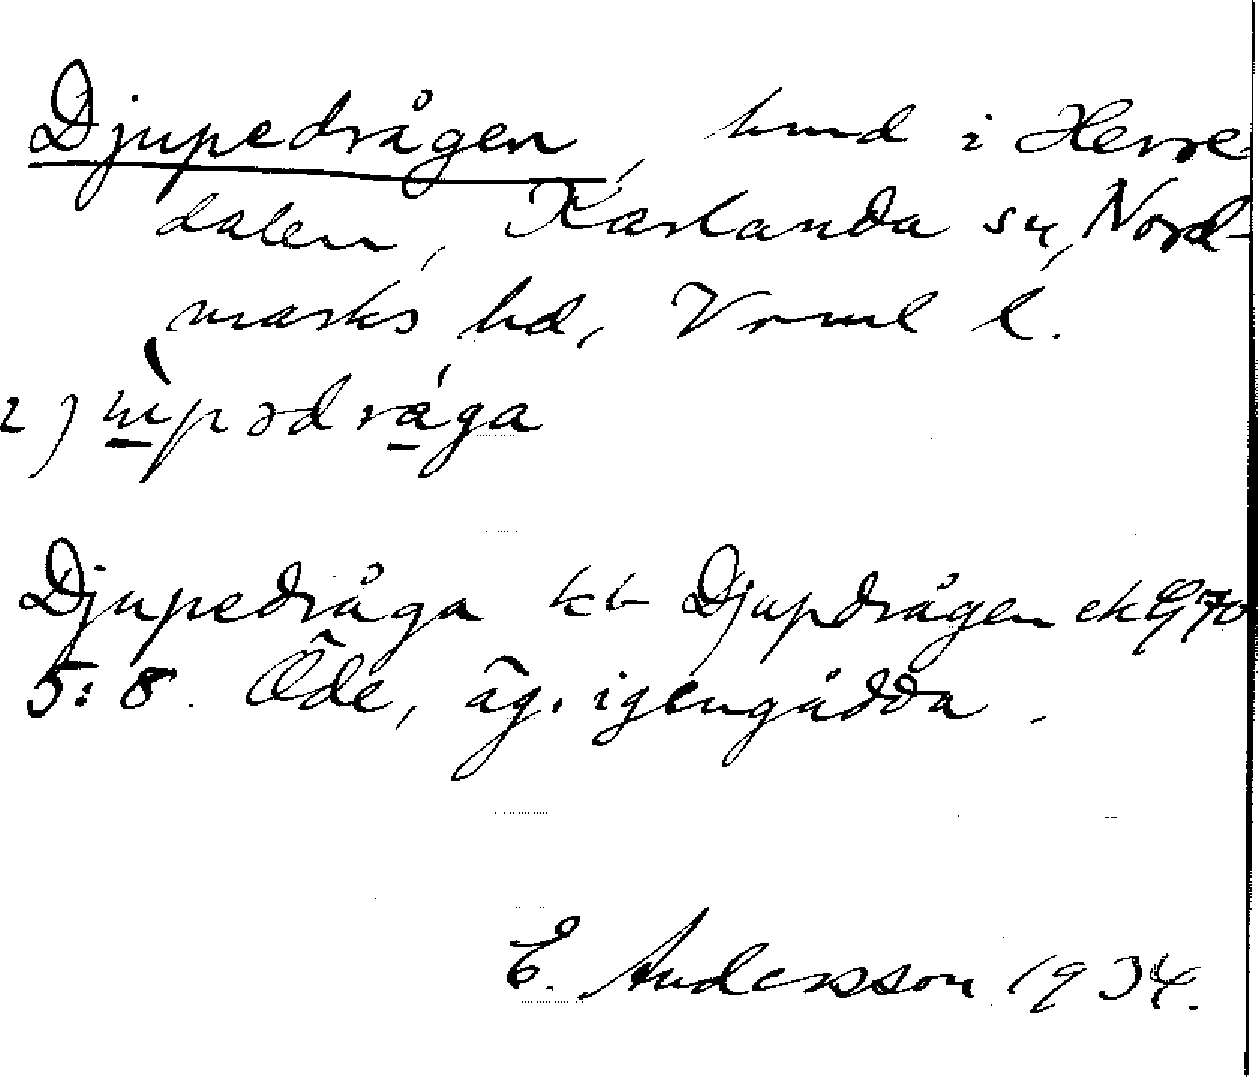 Djupedrågen, hmd i Herre-
dalen, Karlanda sn, Nord-
marks hd, Vrml l.
2)
Djupedråga kb Djupdrågen ek 970
5:8. Öde, äg. igengådda.
E. Andersson 1934.